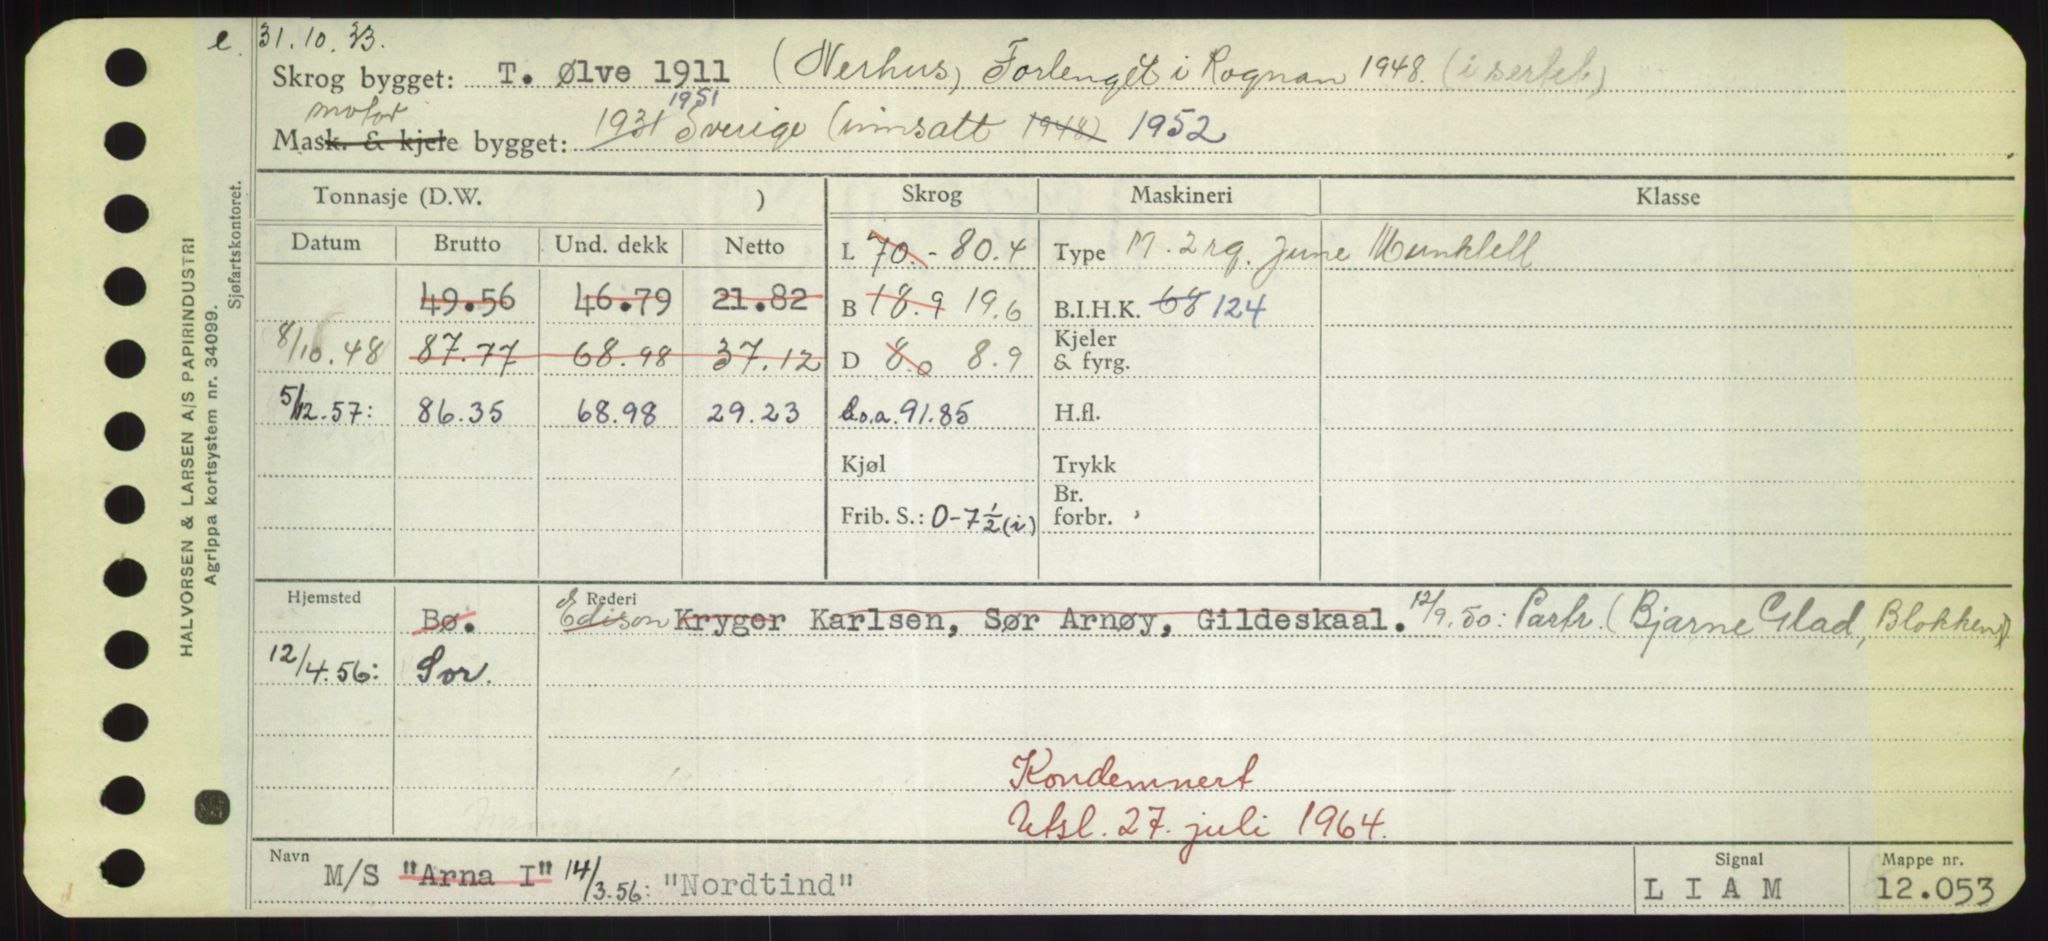 e. 31.10.33.
Skrog bygget: T. Ølve 1911 (Nerhus) Forlenget i Rognan 1948. (i sertif.)
motor 1951
Mask. & kjele bygget: 1931 Sverige (innsatt 1948) 1952
Tonnasje (D.W. ) Skrog Maskineri Klasse
Datum Brutto Und. dekk Netto L 70.- 80.4 Type M. 2 syl. June Munktell
49.56 46.79 21.82 B 18.9 19.6 B.I.H.K. 68 124
8/10.48 87.77 68.98 37.12 D 8.0 8.9 Kjeler & fyrg.
5/12.57: 86.35 68.98 29.23 L.o.a. 91.85 H.fl.
Kjøl Trykk
Frib. S.: 0-7½(i) Br. forbr.
Hjemsted Rederi
Bø. Edison Kryger Karlsen, Sør Arnøy, Gildeskaal. 12/9.50: Partr. (Bjarne Glad, Blokken)
12/4.56: Sor.
Kondemnert
Utsl. 27. juli 1964.
Navn Signal Mappe nr.
M/S "Arna I" 14/3.56: "Nordtind" L I A M 12.053
HALVORSEN & LARSEN A/S PAPIRINDUSTRI
Agrippa kortsystem nr. 34099.
Sjøfartskontoret.